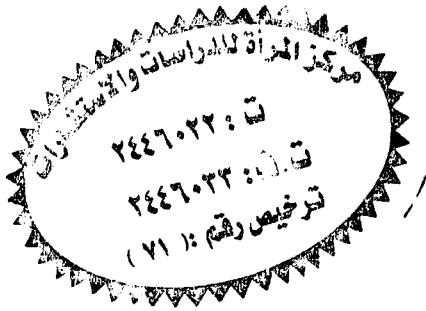 مركز المرأة للدراسات والاستشارات
ت : ٢٤٤٦٠٢٢
ت.ف: ٢٤٤٦٠٣٣
ترخيص رقم :( ٧١ )